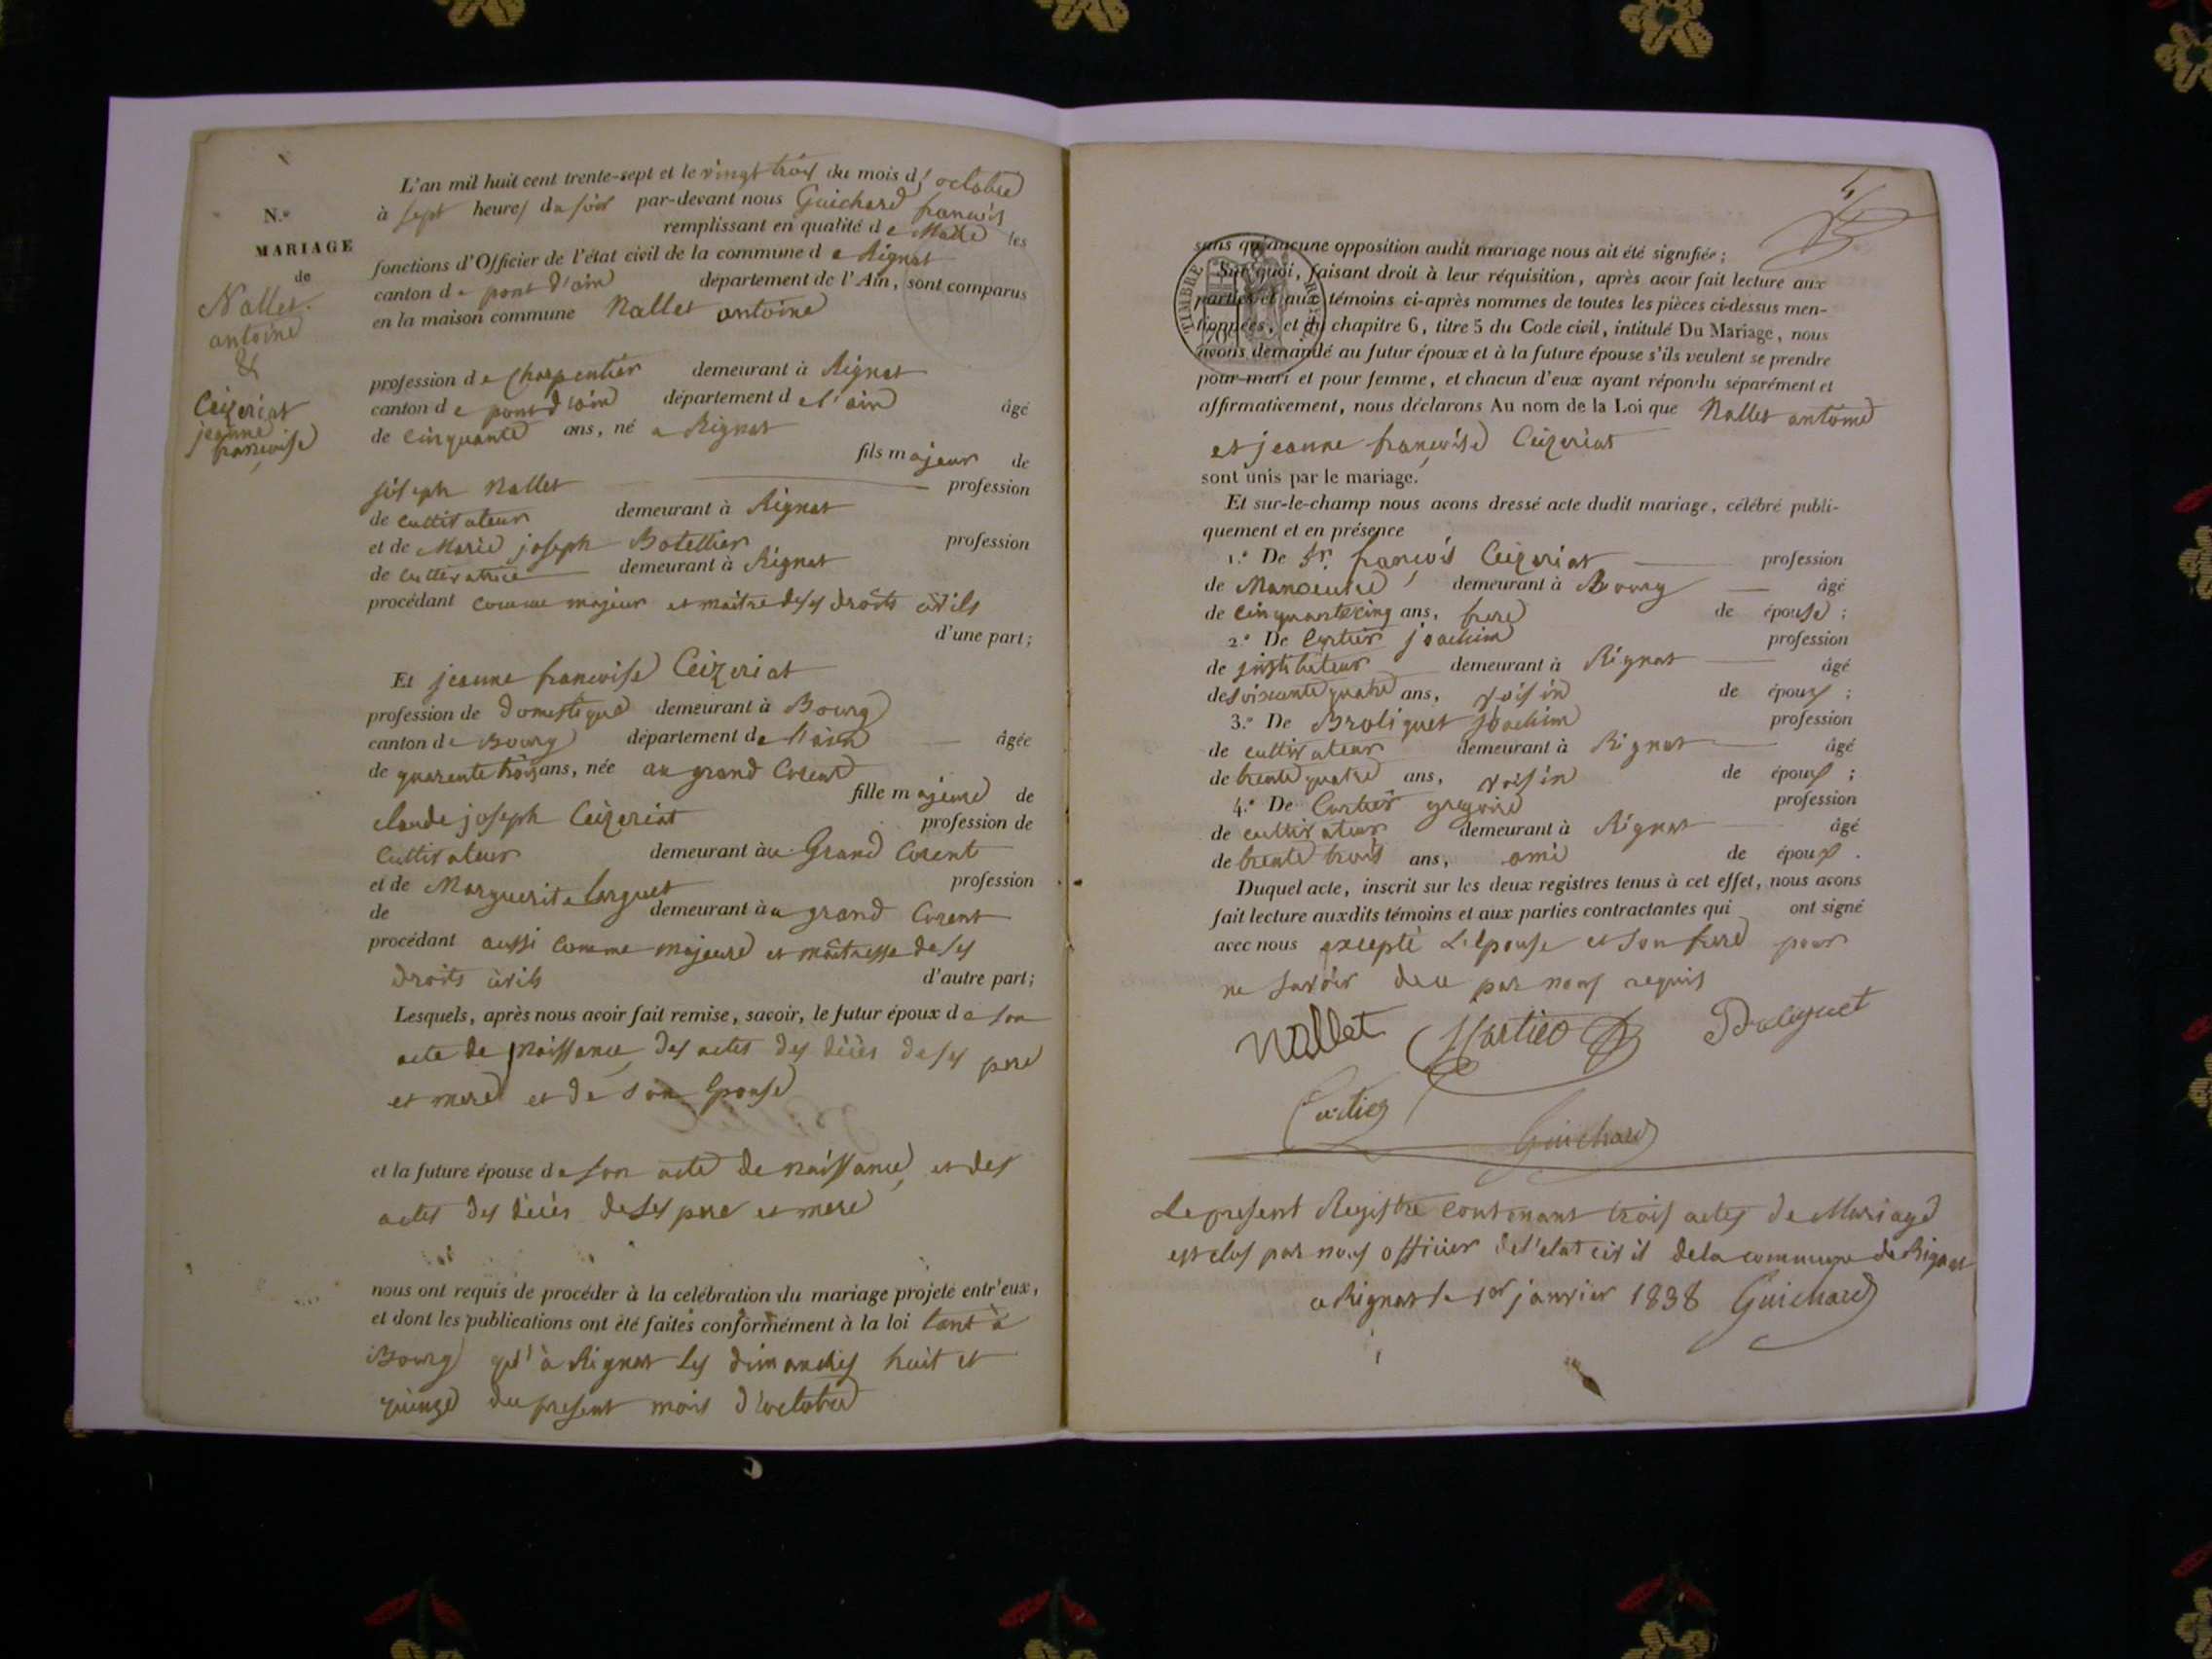 N.º
MARIAGE
de
Nallet
antoine
&
Ceizeriat
jeanne
francoise
L'an mil huit cent trente-sept et le vingt trois du mois d'octobre
à sept heures du soir par-devant nous Guichard francois
remplissant en qualité de Maire les
fonctions d'Officier de l'état civil de la commune de Rignat
canton de pont d'ain département de l'Ain, sont comparus
en la maison commune Nallet antoine
profession de charpentier demeurant à Rignat
canton de pont d'ain département de l'ain âgé
de cinquante ans, né a Rignat
fils majeur de
joseph Nallet profession
de cultivateur demeurant à Rignat
et de Marie joseph Botellier profession
de cultivatrice demeurant à Rignat
procédant comme majeur et maitre de ses droits civils
d'une part;
Et jeanne francoise Ceizeriat
profession de domestique demeurant à Bourg
canton de Bourg département de l'ain âgée
de quarente trois ans, née au grand Corent
fille majeure de
claude joseph Ceizeriat profession de
cultivateur demeurant àu Grand Corent
et de Marguerite Larguet profession
de demeurant àu grand Corent
procédant aussi comme majeure et maitresse de ses
droits civils d'autre part;
Lesquels, après nous avoir fait remise, savoir, le futur époux de son
acte de Naissance, des actes des décès de ses pere
et mere et de son Epouse
et la future épouse de son acte de naissance, et des
actes des décès de ses pere et mere
nous ont requis de procéder à la celébration du mariage projeté entr'eux,
et dont les publications ont été faites conformément à la loi tant à
Bourg qu'à Rignat les dimanches huit et
quinze du present mois d'octobre
sans qu'aucune opposition audit mariage nous ait été signifiée;
TIMBRE ROYAL
70
Sur quoi, faisant droit à leur réquisition, après avoir fait lecture aux
parties et aux témoins ci-après nommes de toutes les pièces ci-dessus men-
tionnées, et du chapitre 6, titre 5 du Code civil, intitulé Du Mariage, nous
avons demandé au futur époux et à la future épouse s'ils veulent se prendre
pour mari et pour femme, et chacun d'eux ayant répondu séparément et
affirmativement, nous déclarons Au nom de la Loi que Nallet antoine
et jeanne francoise Ceizeriat
sont unis par le mariage.
Et sur-le-champ nous avons dressé acte dudit mariage, célébré publi-
quement et en présence
1.º De Sr. francois Ceizeriat profession
de Manoeuvre demeurant à Bourg âgé
de cinquante cinq ans, frere de épouse;
2.º De Cartier joachim profession
de instituteur demeurant à Rignat âgé
de soixante quatre ans, voisin de époux;
3.º De Broliquet joachim profession
de cultivateur demeurant à Rignat âgé
de trente quatre ans, voisin de époux;
4.º De Cartier gregoire profession
de cultivateur demeurant à Rignat âgé
de trente trois ans, ami de époux.
Duquel acte, inscrit sur les deux registres tenus à cet effet, nous avons
fait lecture auxdits témoins et aux parties contractantes qui ont signé
avec nous excepté L'Epouse et son frere pour
ne savoir de ce par nous requis
Nallet Cartier Broliquet
Cartier
Guichard
Le present Registre contenant trois actes de Mariage
est clos par nous officier de l'etat civil de la commune de Rignat
a Rignat le 1er janvier 1838 Guichard